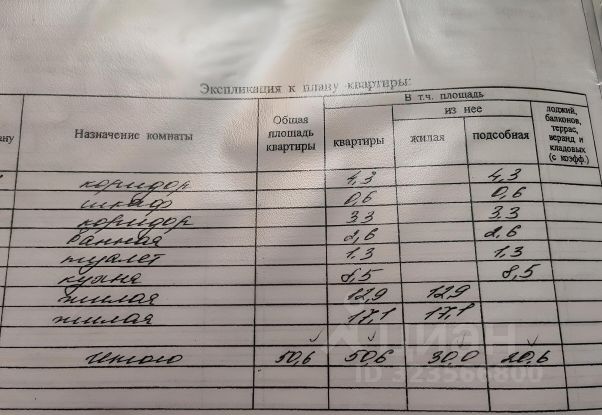 Экспликация к плану квартиры:
ану Назначение комнаты Общая площадь квартиры В т.ч. площадь лоджий, балконов, террас, веранд и кладовых (с коэфф.)
из нее
квартиры жилая подсобная
коридор 4,3 4,3
шкаф 0,6 0,6
коридор 3,3 3,3
ванная 2,6 2,6
туалет 1,3 1,3
кухня 8,5 8,5
жилая 12,9 12,9
жилая 17,1 17,1
Итого 50,6 50,6 30,0 20,6
циан
ID 323566800